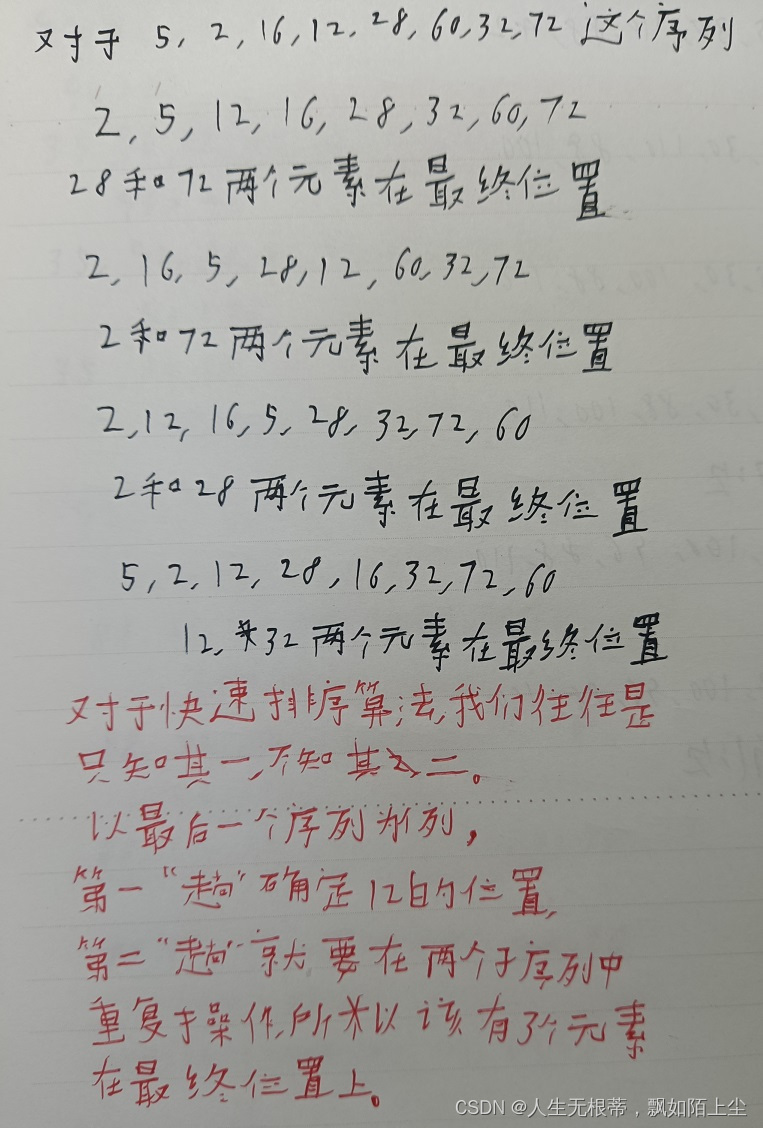 对于 5, 2, 16, 12, 28, 60, 32, 72 这个序列
2, 5, 12, 16, 28, 32, 60, 72
28和72两个元素在最终位置
2, 16, 5, 28, 12, 60, 32, 72
2和72两个元素在最终位置
2, 12, 16, 5, 28, 32, 72, 60
2和28两个元素在最终位置
5, 2, 12, 28, 16, 32, 72, 60
12, 32两个元素在最终位置
对于快速排序算法,我们往往是
只知其一,不知其二。
以最后一个序列为例,
第一“趟”确定12的位置,
第二“趟”就要在两个子序列中
重复操作,所以该有3个元素
在最终位置上。
CSDN @人生无根蒂，飘如陌上尘